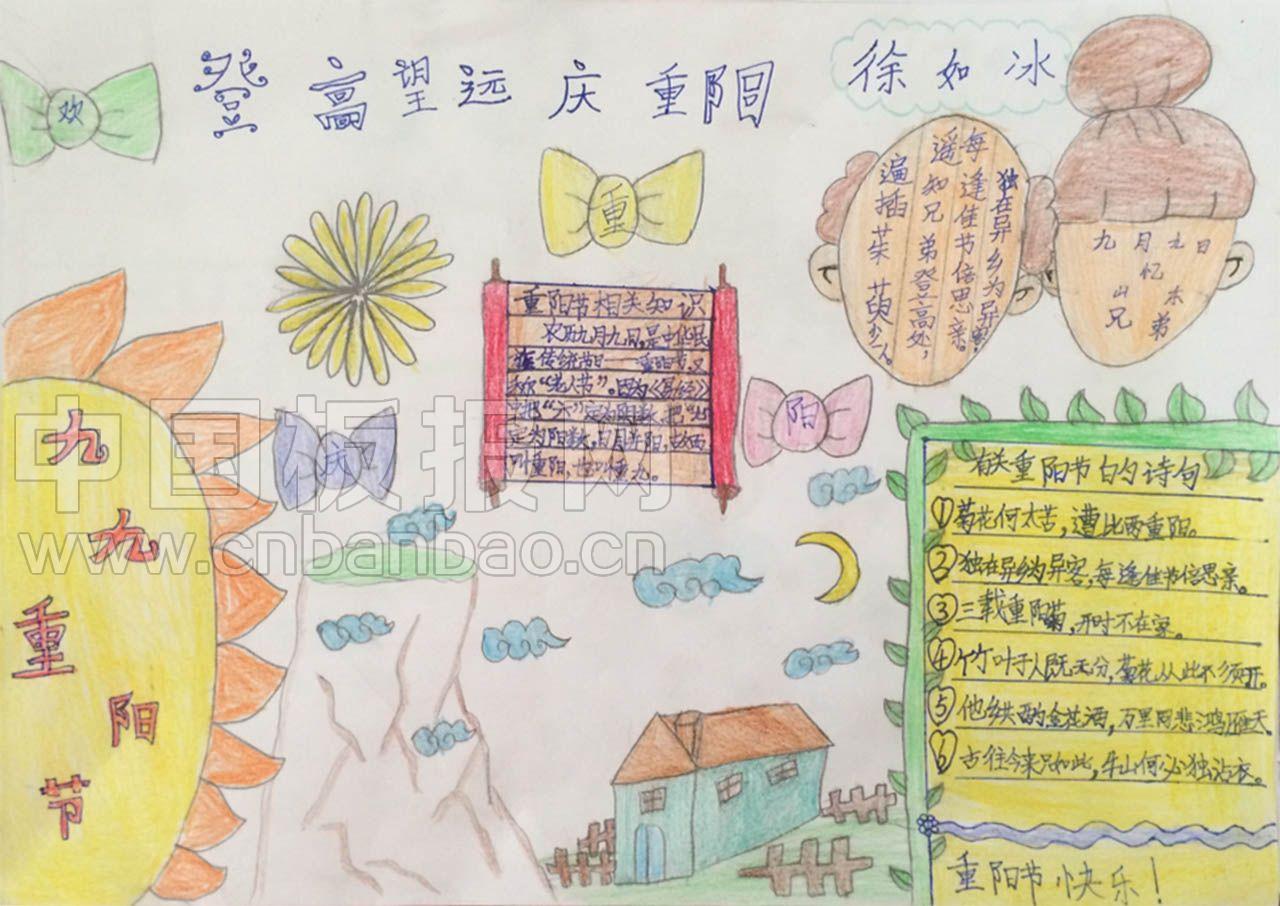 登高望远庆重阳
徐如冰
欢
重
庆
阳
九九重阳节
重阳节相关知识
农历九月九日,是中华民
族传统节日——重阳节,又
称"老人节"。因为《易经》
中把"六"定为阴数,把"九"
定为阳数,日月并阳,故而
叫重阳,也叫重九。
独在异乡为异客,
每逢佳节倍思亲。
遥知兄弟登高处,
遍插茱萸少一人。
九月九日
忆
山东
兄弟
有关重阳节的诗句
①菊花何太苦,遭比两重阳。
②独在异乡为异客,每逢佳节倍思亲。
③三载重阳菊,开时不在家。
④竹叶于人既无分,菊花从此不须开。
⑤他乡共酌金花酒,万里同悲鸿雁天。
⑥古往今来只如此,牛山何必独沾衣。
重阳节快乐!
中国板报网
www.cnbanbao.cn